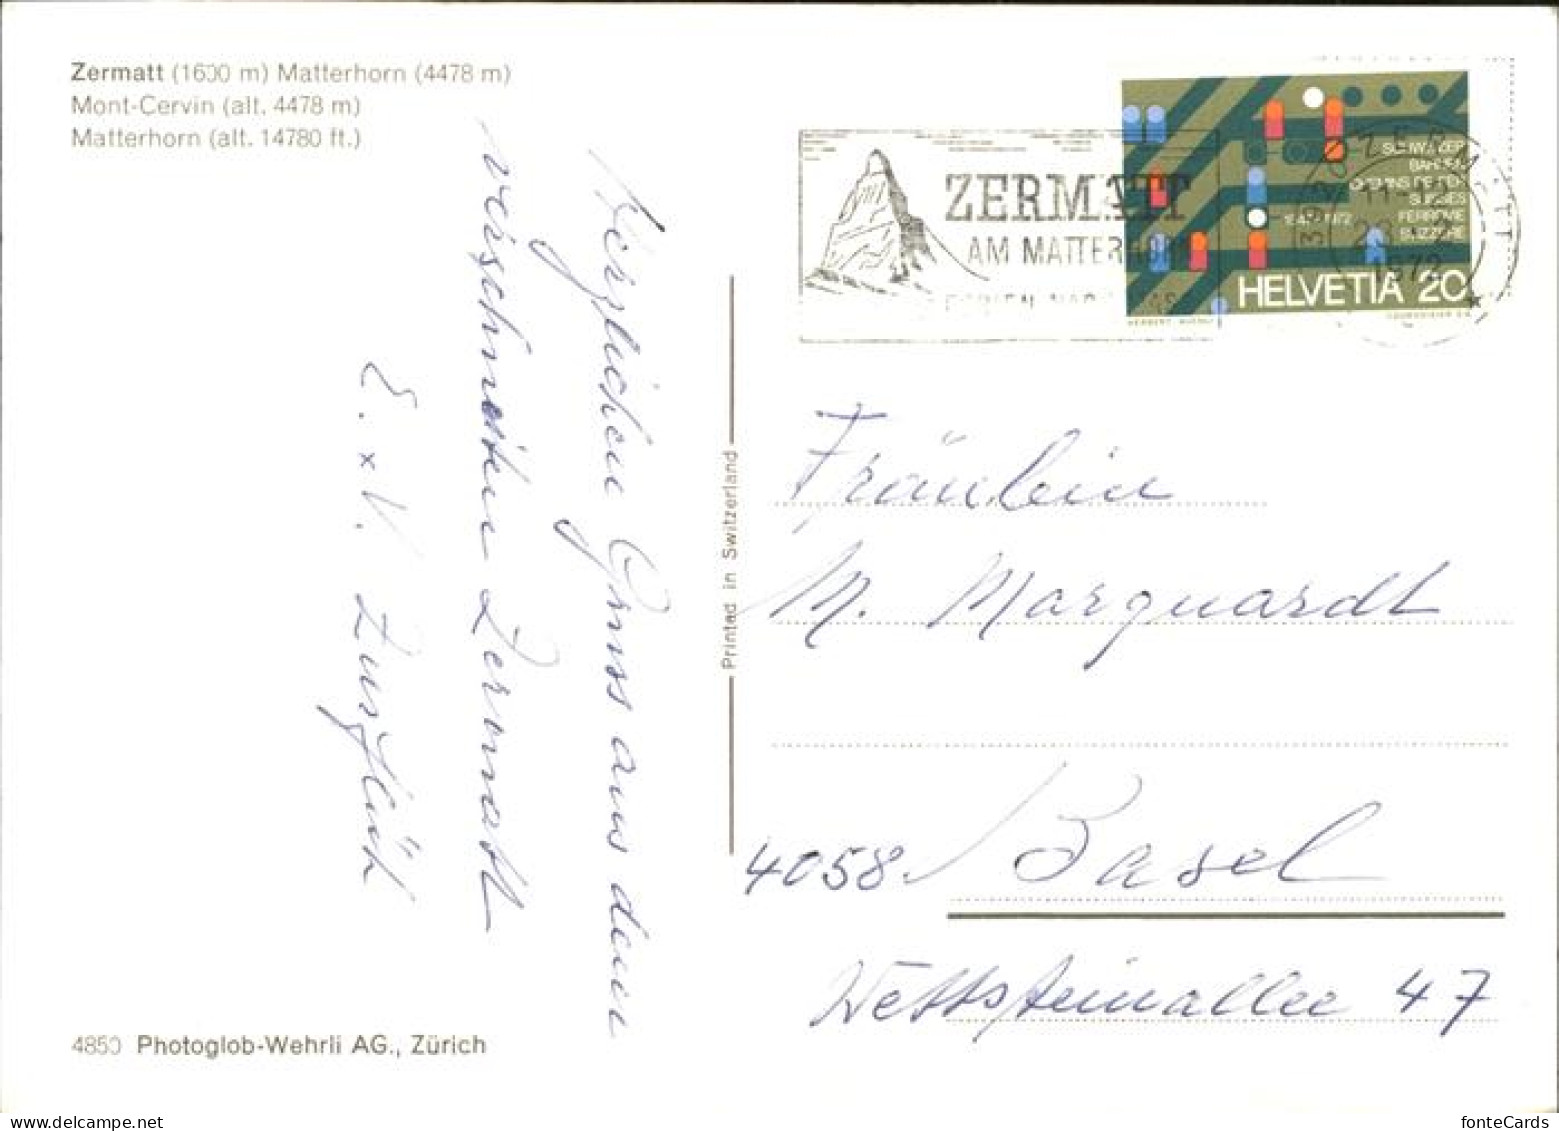 Zermatt (1600 m) Matterhorn (4478 m)
Mont-Cervin (alt. 4478 m)
Matterhorn (alt. 14780 ft.)
ZERMATT
AM MATTERHORN
3920 ZERMATT
1972
SCHWEIZER
BAHNEN
CHEMINS DE FER
SUISSES
FERROVIE
SVIZZERE
1847-1972
HELVETIA 20
COURVOISIER S.A.
Herzlichen Gruss aus dem
verschneiten Zermatt
E. + V. Zurflüh
Printed in Switzerland
Fräulein
M. Marquardt
4058 Basel
Wettsteinallee 47
4850 Photoglob-Wehrli AG., Zürich
fonteCards